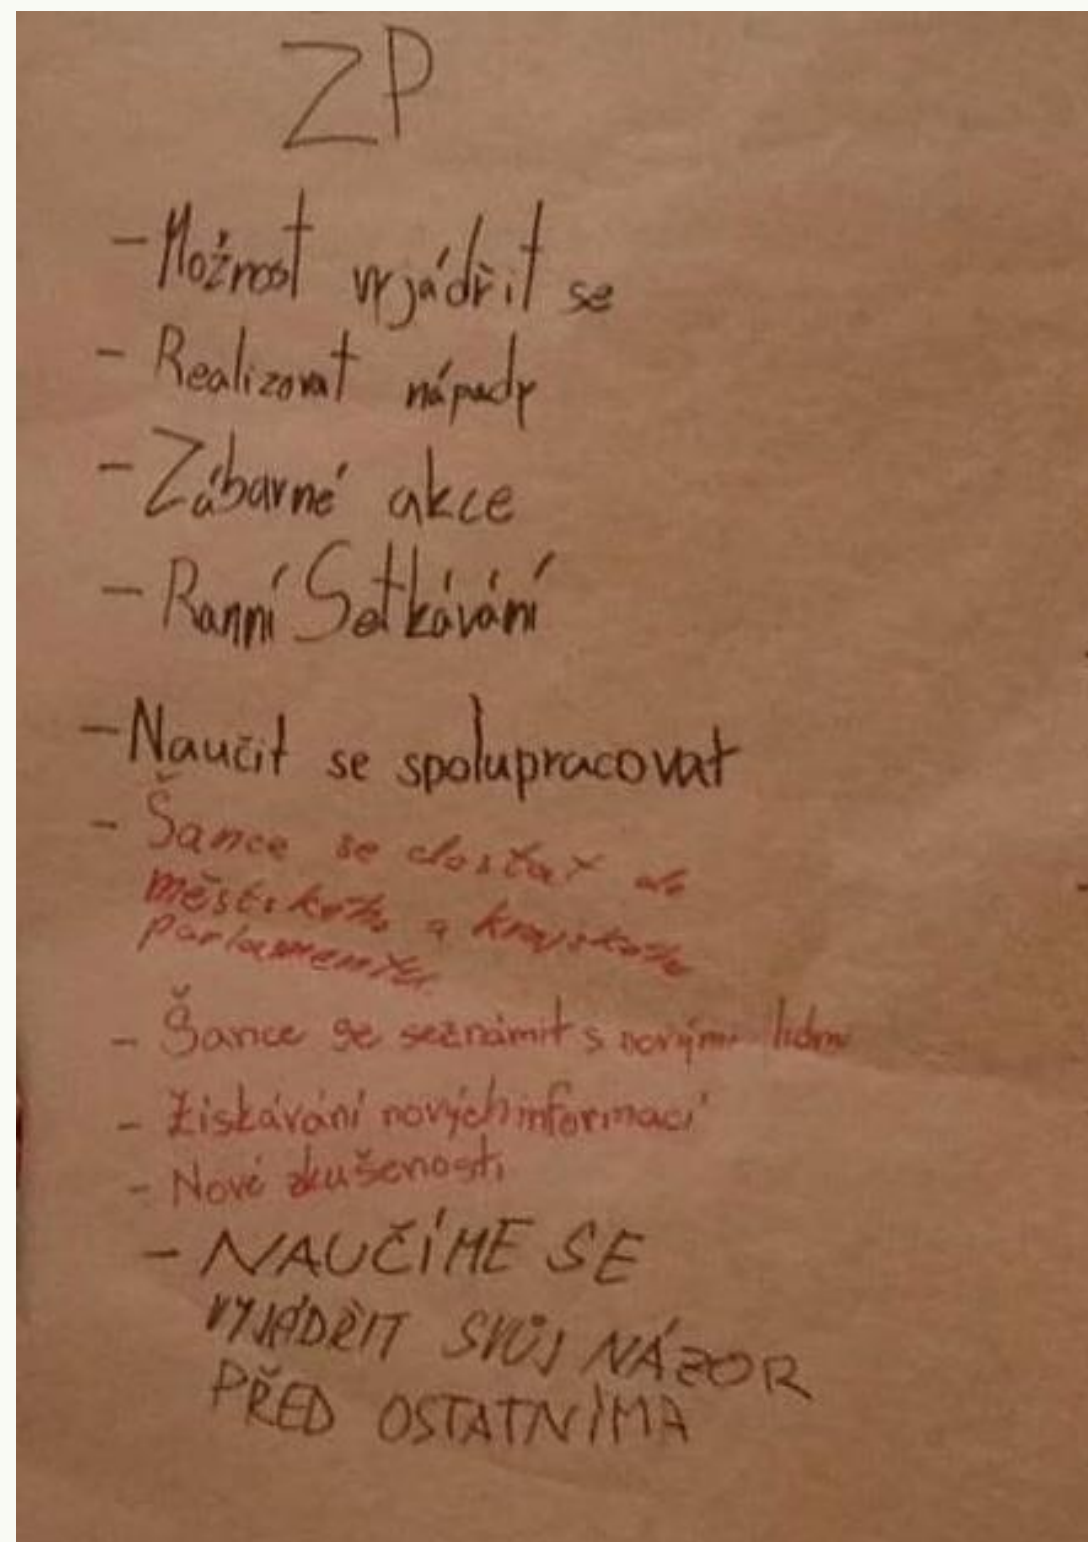 ZP
- Možnost vyjádřit se
- Realizovat nápady
- Zábavné akce
- Ranní Setkávání
- Naučit se spolupracovat
- Šance se dostat do
městského a krajského
parlamentu
- Šance se seznámit s novými lidmi
- Získávání nových informací
- Nové zkušenosti
- NAUČÍME SE
VYJÁDŘIT SVŮJ NÁZOR
PŘED OSTATNÍMA